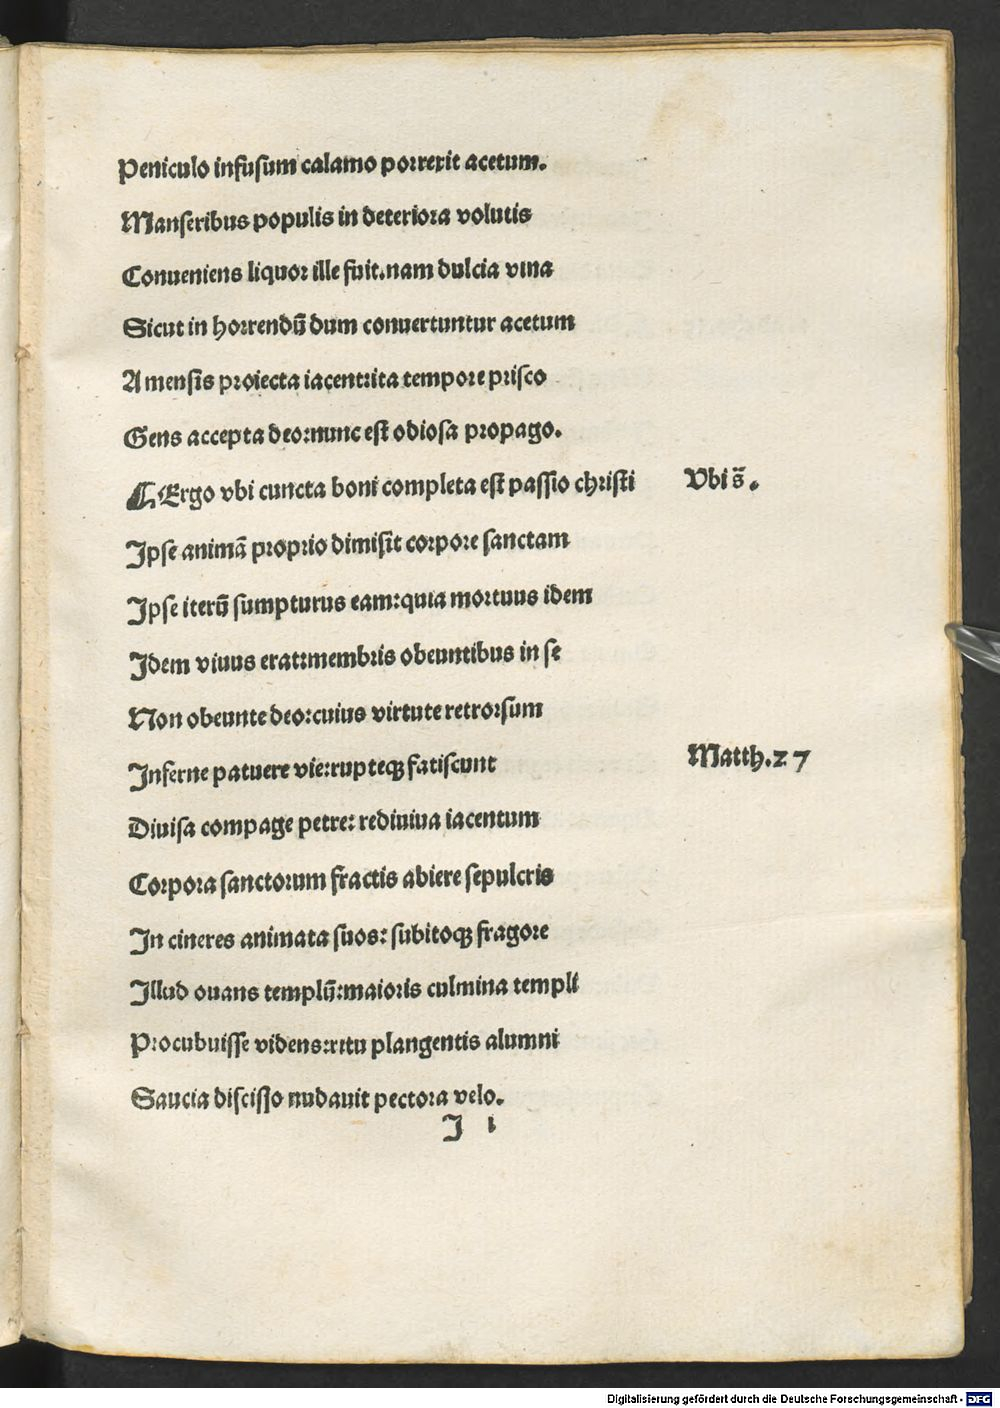 Peniculo infuſum calamo porrexit acetum.
Manſeribus populis in deteriora volutis
Conueniens liquor ille fuit.nam dulcia vina
Sicut in horrendū dum conuertuntur acetum
A menſis proiecta iacent:ita tempore priſco
Gens accepta deo:nunc eſt odioſa propago.
¶Ergo vbi cuncta boni completa eſt paſſio chriſti
Vbi s̄.
Ipſe animā proprio dimiſit corpore ſanctam
Ipſe iterū ſumpturus eam:quia mortuus idem
Idem viuus erat:membris obeuntibus in ſe
Non obeunte deo:cuius virtute retrorſum
Inferne patuere vie:rupteqꝫ fatiſcunt
Matth.27
Diuiſa compage petre: rediuiua iacentum
Corpora ſanctorum fractis abiere ſepulcris
In cineres animata ſuos: ſubitoqꝫ fragore
Illud ouans templū:maioris culmina templi
Procubuiſſe videns:ritu plangentis alumni
Saucia diſciſſo nudauit pectora velo.
I i
Digitalisierung gefördert durch die Deutsche Forschungsgemeinschaft - DFG